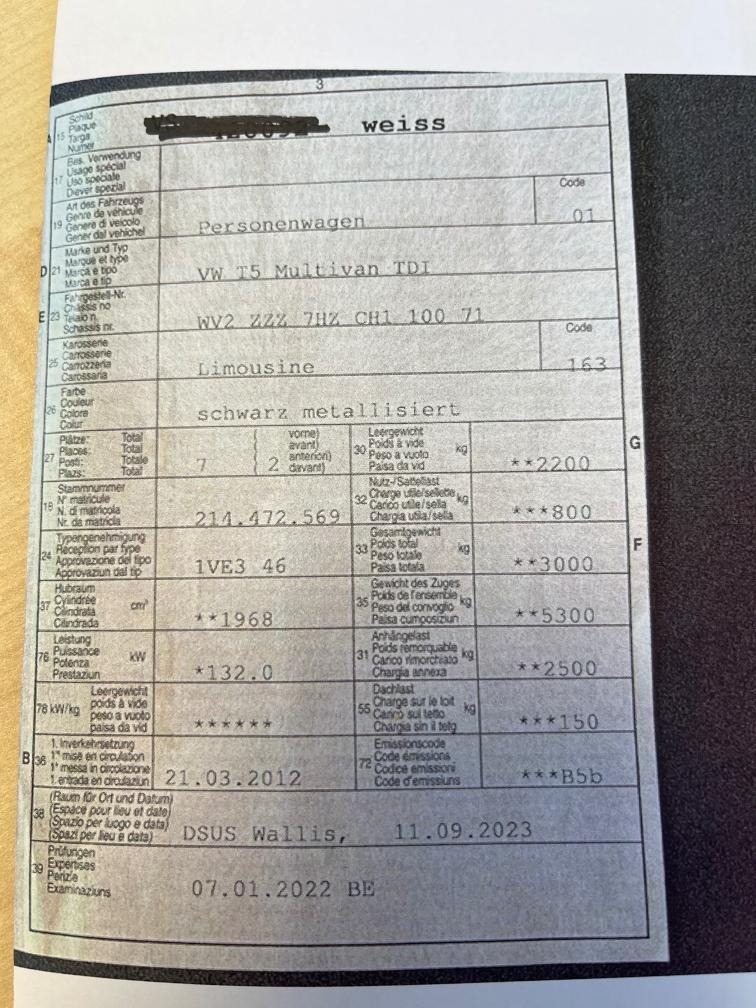 3
A 15 Schild
Plaque
Targa
Numer
weiss
17 Bes. Verwendung
Usage spécial
Uso speciale
Diever spezial
19 Art des Fahrzeugs
Genre de véhicule
Genere di veicolo
Gener dal vehichel
Personenwagen
Code
01
D 21 Marke und Typ
Marque et type
Marca e tipo
Marca e tip
VW T5 Multivan TDI
E 23 Fahrgestell-Nr.
Châssis no
Telaio n.
Schassis nr.
WV2 ZZZ 7HZ CH1 100 71
25 Karosserie
Carrosserie
Carrozzeria
Carossaria
Limousine
Code
163
26 Farbe
Couleur
Colore
Colur
schwarz metallisiert
27 Plätze: Total
Places: Total
Posti: Totale
Plazs: Total
7
( vorne)
avant)
anteriori)
( 2 davant)
30 Leergewicht
Poids à vide kg
Peso a vuoto
Paisa da vid
**2200
G
18 Stammnummer
N° matricule
N. di matricola
Nr. da matricla
214.472.569
32 Nutz-/Sattellast
Charge utile/sellette kg
Carico utile/sella
Chargia utila/sella
***800
24 Typengenehmigung
Réception par type
Approvazione del tipo
Approvaziun dal tip
1VE3 46
33 Gesamtgewicht
Poids total kg
Peso totale
Paisa totala
**3000
F
37 Hubraum
Cylindrée cm³
Cilindrata
Cilindrada
**1968
35 Gewicht des Zuges
Poids de l'ensemble kg
Peso del convoglio
Paisa cumposiziun
**5300
76 Leistung
Puissance kW
Potenza
Prestaziun
*132.0
31 Anhängelast
Poids remorquable kg
Carico rimorchiato
Chargia annexa
**2500
78 kW/kg Leergewicht
poids à vide
peso a vuoto
paisa da vid
******
55 Dachlast
Charge sur le toit kg
Carico sul tetto
Chargia sin il tetg
***150
B 36 1. Inverkehrsetzung
1re mise en circulation
1a messa in circolazione
1. entrada en circulaziun
21.03.2012
72 Emissionscode
Code émissions
Codice emissioni
Code d'emissiuns
***B5b
38 (Raum für Ort und Datum)
(Espace pour lieu et date)
(Spazio per luogo e data)
(Spazi per lieu e data)
DSUS Wallis, 11.09.2023
39 Prüfungen
Expertises
Perizie
Examinaziuns
07.01.2022 BE